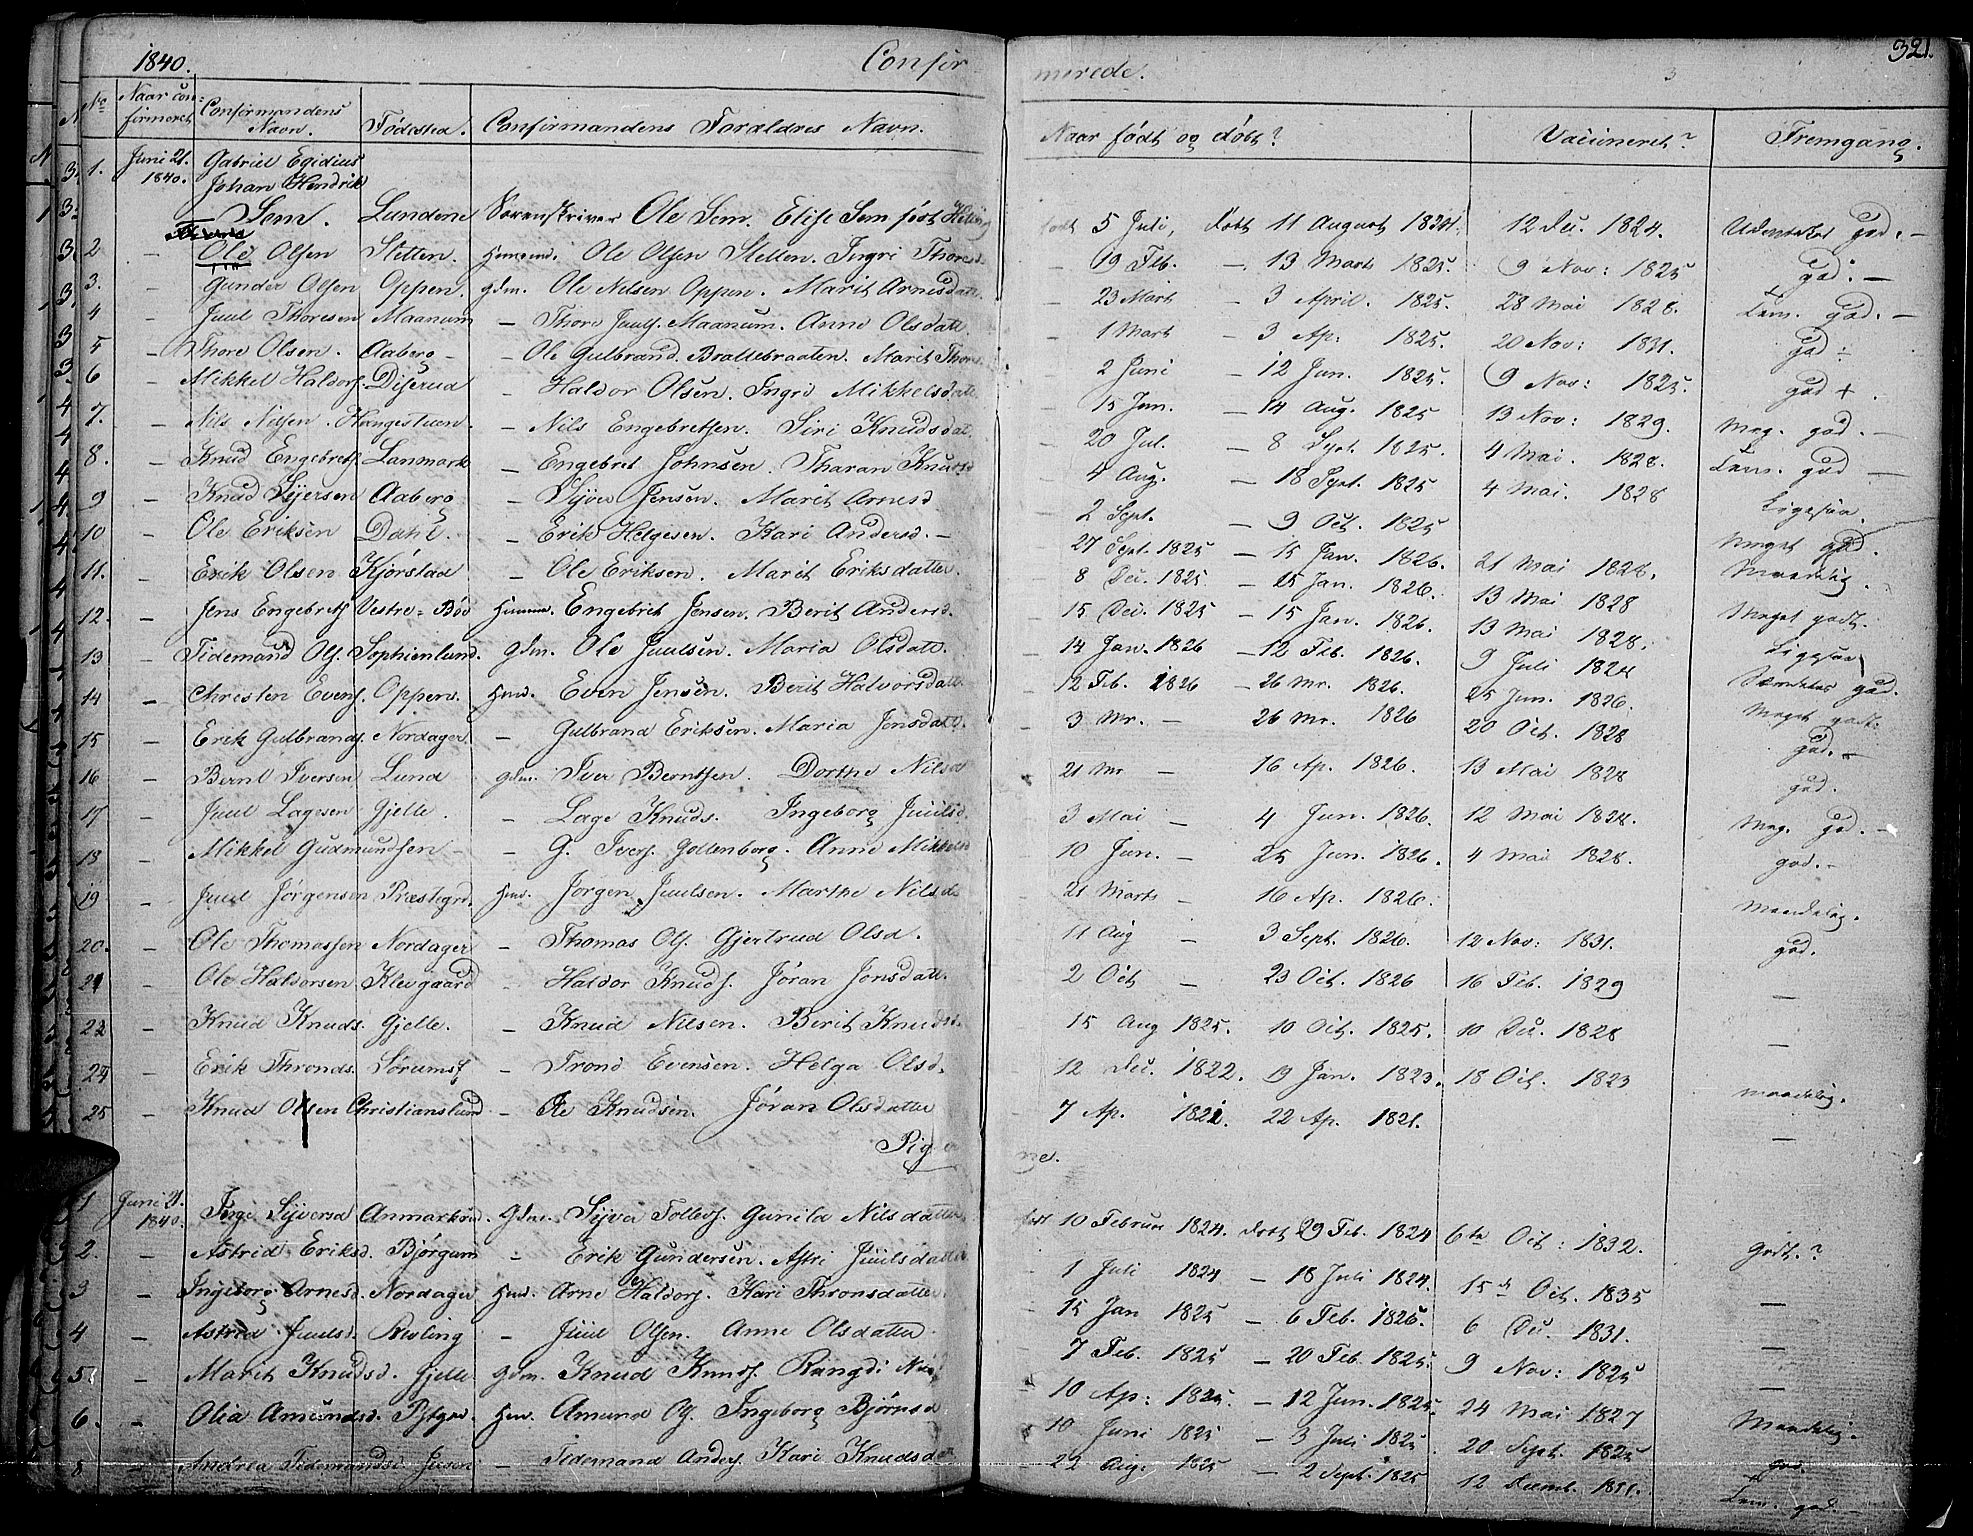 1840. Confir merede. 321.
No Naar confirmeret Confirmandens Navn. Fødested. Confirmandens Forældres Navn. Naar født og døbt? Vaccineret? Fremgang.
1. Juni 21. 1840. Gabriel Egidius
Johan Hendrik
Sem. Lundene Sorenskriver Ole Sem. Elise Sem født født 5 Juli, døbt 11 August 1824. 12 Dec. 1824. Udmærket god. —
2. — Ole Olsen Sletten. Huusmd. Ole Olsen Sletten. Ingri Thoresd. — 19 Feb. — 13 Marts 1825. 9 Nov: 1825 god. —
3. — Gunder Olsen Oppen. gdm. Ole Nilsen Oppen. Marit Arnesdatt. — 23 Mart — 3 April. 1825. 28 Mai 1828. Tem. god. —
4 — Juul Thoresen Maanum — Thore Juuls. Maanum. Anne Olsdatt. — 1 Mart — 3 Ap. 1825. 20 Nov: 1831. god
5 — Thore Olsen. Aaberg — — Ole Gulbrand. Brattebraaten. Marit Thores — 2 Juni — 12 Jun. 1825. 9 Nov: 1825. god +.
6 — Mikkel Haldors. Diserud — Haldor Olsen. Ingri Mikkelsdatt. — 15 Jun. — 14 Aug. 1825 13 Nov: 1829. Meg. god. —
7. — Nils Nilsen. Haugestuen. — Nils Engebretsen. Siri Knudsdat. — 20 Jul. — 8 Sept. 1825. 4 Mai. 1828. Tem. god —
8. — Knud Engebrets. Lanmark — Engebret Johnsen. Tharan Knutsd — 4 Aug. — 18 Sept. 1825 4 Mai. 1828 Ligesaa.
9 — Knud Syversen Aaberg — Syver Jensen. Marit Arnesd — 2 Sept. — 9 Oct. 1825 Meget god.
10 — Ole Eriksen Dahl. — Erik Helgesen. Kari Andersd. — 27 Sept. 1825 — 15 Jan. 1826. 21 Mai 1828. Maadelig.
11. — Erik Olsen Kjørstad — Ole Eriksen. Marit Eriksdatter. 8 Dec. 1825 — 25 Jan. 1826. 13 Mai 1828 Meget godt.
12. — Jens Engebrets Vestre-Bød Huusm. Engebret Jensen. Berit Andersd. 15 Dec. 1825 — 15 Jan. 1826. 13 Mai 1828. Ligesaa
13 — Tidemand Ols. Sophienlund. gdm. Ole Juulsen. Maria Olsdatt. 14 Jan. 1826 — 12 Feb. 1826. 9 Juli 1824 god.
14 — Christen Evens. Oppen. Hmd. Even Jensen. Berit Halvorsdatt. 12 Feb. 1826 — 26 Mr. 1826. 25 Jun. 1826. Meget godt.
15 — Erik Gulbrands. Nordager. — Gulbrand Eriksen. Maria Jonsdatt. 3 Mr. — 26 Mr. 1826 20 Oct. 1828 god. —
16 — Bernt Iversen Lund gdm. Iver Berntsen. Dorthe Nilsd 21 Mr — 16 Ap. 1826. 13 Mai 1828 god.
17 — Juul Lagesen Gjelle. — Lage Knuds. Ingeborg Juulsd. 3 Mai — 4 Jun. 1826. 12 Mai 1828. Meg. god. —
18 — Mikkel Gudmundsen — — G. Ivers. Gollenborg. Anne Mikkelsd 10 Jun. — 25 Jun. 1826. 4 Mai 1828. god. —
19 — Juul Jørgensen Præstegrd. Hmd. Jørgen Juulsen. Marthe Nilsda 21 Marts — 16 Ap. 1826. Maadelig.
20. — Ole Thomassen Nordager — Thomas Ols. Gjertrud Olsd. 11 Aug — 3 Sept. 1826. 12 Nov: 1831. god.
21 — Ole Haldorsen Klevgaard — Haldor Knuds. Jøran Jonsdatt. 2 Oct — 23 Oct. 1826 16 Feb. 1829 —
22 — Knud Knuds. Gjelle. — Knud Nilsen. Berit Knudsd. 15 Aug 1825. 10 Oct. 1825. 10 Dec. 1828 —
24 — Erik Thronds. Sørums — Trond Evensen. Helga Olsd. 12 Dec. 1822. 19 Jan. 1823. 18 Oct. 1823 maadelig.
25 — Knud Olsen Christianslund — Ole Knudsen. Jøran Olsdatter 7 Ap. 1821. 22 Ap. 1821. —
Piger ne.
1 Juni 21. 1840. Inge Syversd Anmarkrud. Gdm. Syver Tollevs. Gunild Nilsdatter født 10 Februar 1824. døbt 29 Feb. 1824 6te Oct: 1832. Godt.?
2. — Astrid Eriksd. Bjørgum — Erik Gundersen. Astri Juulsdatter 1 Juli 1824 — 18 Juli 1824. 15d Oct. 1835 —
3 — Ingeborg Arnesd. Nordager Hmd. Arne Haldors. Kari Thronsdatter. 15 Jan 1825 — 6 Feb. 1825. 6 Dec. 1831. —
4 — Astrid Juulsd. Rusling — Juul Olsen. Anne Olsdatter 7 Feb. 1825 — 20 Feb. 1825. 9 Nov: 1825 —
5. — Marit Knudsd. Gjelle Gdm. Knud Knuts. Rangdi 10 Ap: 1825. — 12 Jun. 1825. 24 Mai 1827 Maadelig.
6. — Olia Amundsd. Hmd. Amund Ols. Ingeborg Bjørnsd 10 Juni 1825 — 3 Juli 1825. 20 Sept. 1825 go.
8 — Andrea Tidemandsd Juven — Tidemand Anders. Kari Knudsdat 22 Aug. 1825 — 2 Sept. 1825 12 Decemb. 1831. Tem. god. —